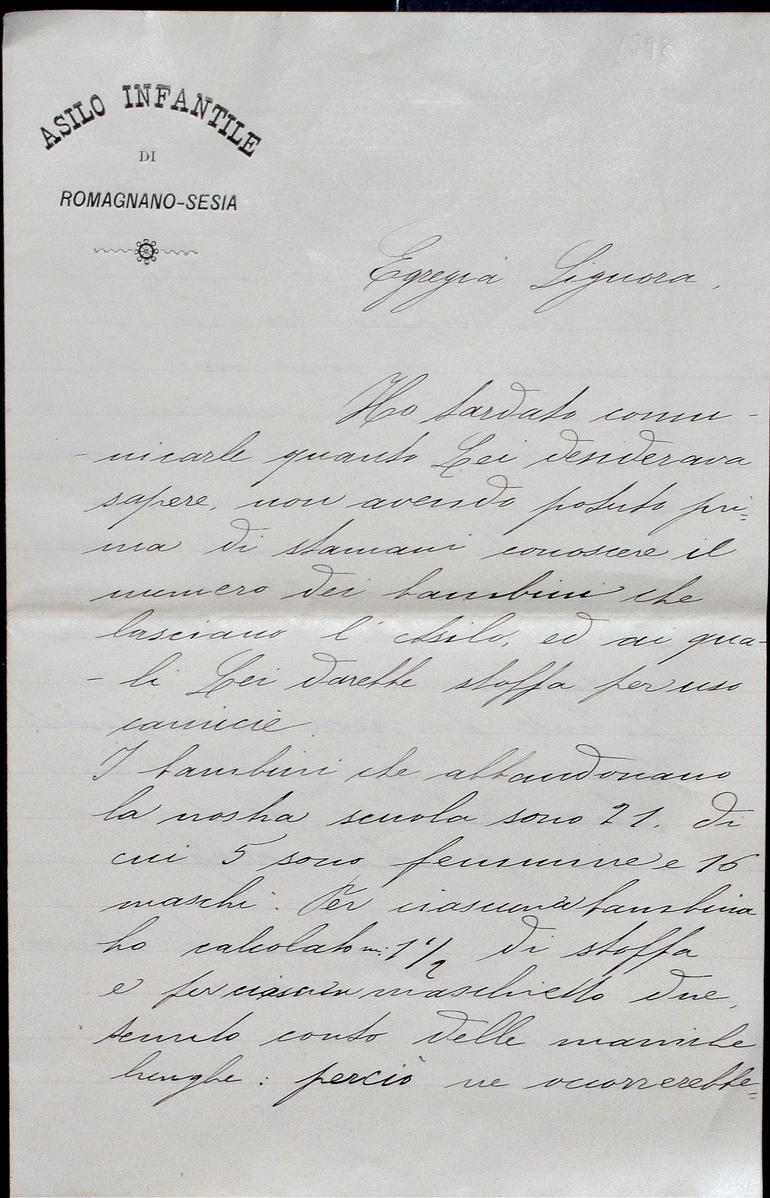 ASILO INFANTILE
DI
ROMAGNANO-SESIA
Egregia Signora,
Ho tardato comu-
-nicarle quanto Lei desiderava
sapere, non avendo potuto pri=
ma di stamani conoscere il
numero dei bambini che
lasciano l'Asilo, ed ai qua-
-li Lei darebbe stoffa per uso
camicie.
I bambini che abbandonano
la nostra scuola sono 21, di
cui 5 sono femmine e 16
maschi. Per ciascuna bambina
ho calcolato m: 1 1/2 di stoffa
e per ciascun maschietto due,
tenuto conto delle maniche
lunghe: perciò ne occorrerebbe=